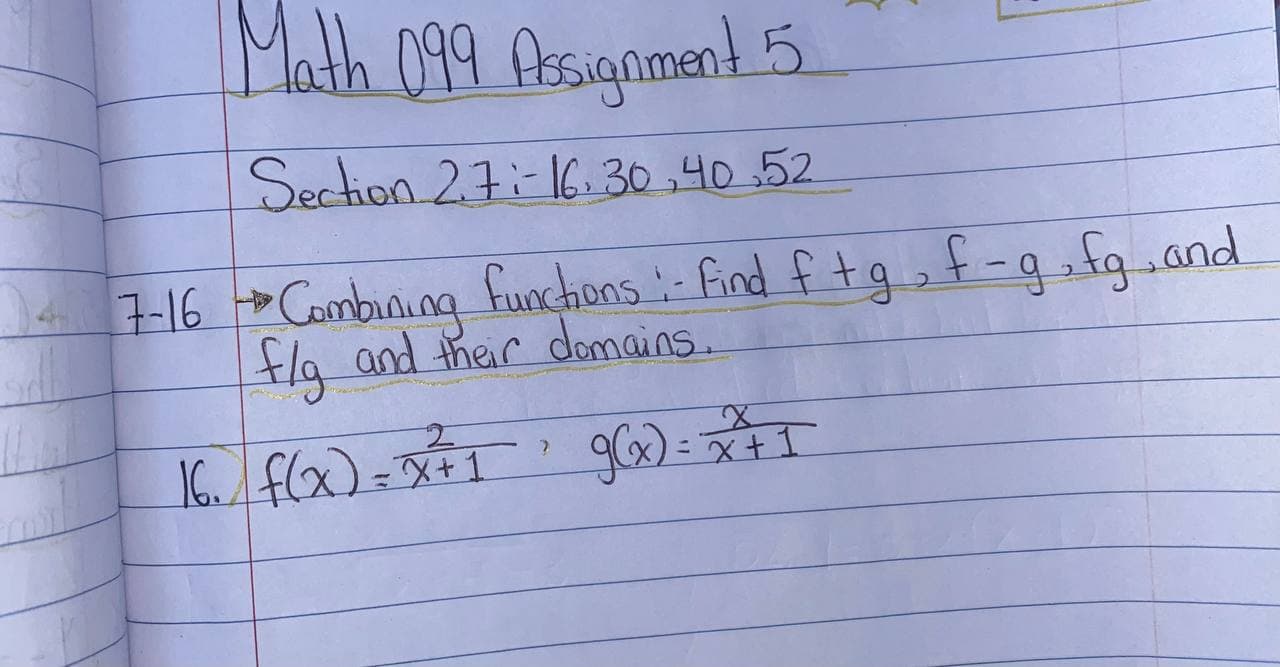 Math 099 Assignment 5
Section 2.7:- 16, 30, 40, 52
7-16 → Combining functions :- Find f + g, f - g, fg, and
f/g and their domains.
16.) f(x) = 2/x+1 , g(x) = x/x+1